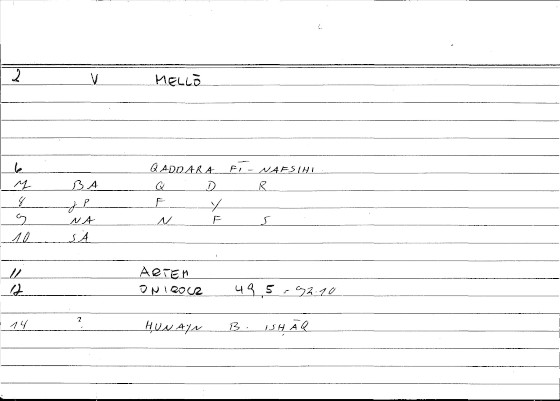 2 V MELLŌ
6 QADDARA FĪ-NAFSIHI
7 BA Q D R
8 JP F Y
9 NA N F S
10 SA
11 ARTEM
12 ONIROCR 49,5 - 92.10
14 ? ḤUNAYN B. ISḤĀQ